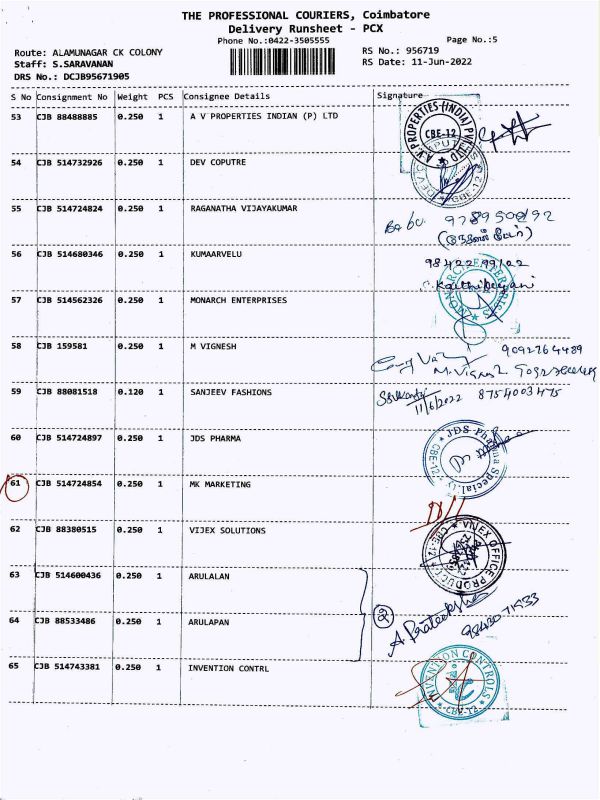 THE PROFESSIONAL COURIERS, Coimbatore
Delivery Runsheet - PCX
Phone No.:0422-3505555
Page No.:5
Route: ALAMUNAGAR CK COLONY
RS No.: 956719
Staff: S.SARAVANAN
RS Date: 11-Jun-2022
DRS No.: DCJB95671905
S No Consignment No Weight PCS Consignee Details Signature
53 CJB 88488885 0.250 1 A V PROPERTIES INDIAN (P) LTD
A.V. PROPERTIES (INDIA) PVT. LTD
CBE-12
54 CJB 514732926 0.250 1 DEV COPUTRE
CBE-12
55 CJB 514724824 0.250 1 RAGANATHA VIJAYAKUMAR
Babu
56 CJB 514680346 0.250 1 KUMAARVELU
98422 99122
57 CJB 514562326 0.250 1 MONARCH ENTERPRISES
MONARCH ENTERPRISES
58 CJB 159581 0.250 1 M VIGNESH
9092764489
M.Vignesh
59 CJB 88081518 0.120 1 SANJEEV FASHIONS
8754003475
11/6/2022
60 CJB 514724897 0.250 1 JDS PHARMA
JDS Pharma Speciality
CBE-12
61 CJB 514724854 0.250 1 MK MARKETING
62 CJB 88380515 0.250 1 VIJEX SOLUTIONS
VIJEX OFFICE PRODUC
CBE-12
63 CJB 514600436 0.250 1 ARULALAN
2
64 CJB 88533486 0.250 1 ARULAPAN
9843071933
65 CJB 514743381 0.250 1 INVENTION CONTRL
INVENTION CONTROLS
CBE-12